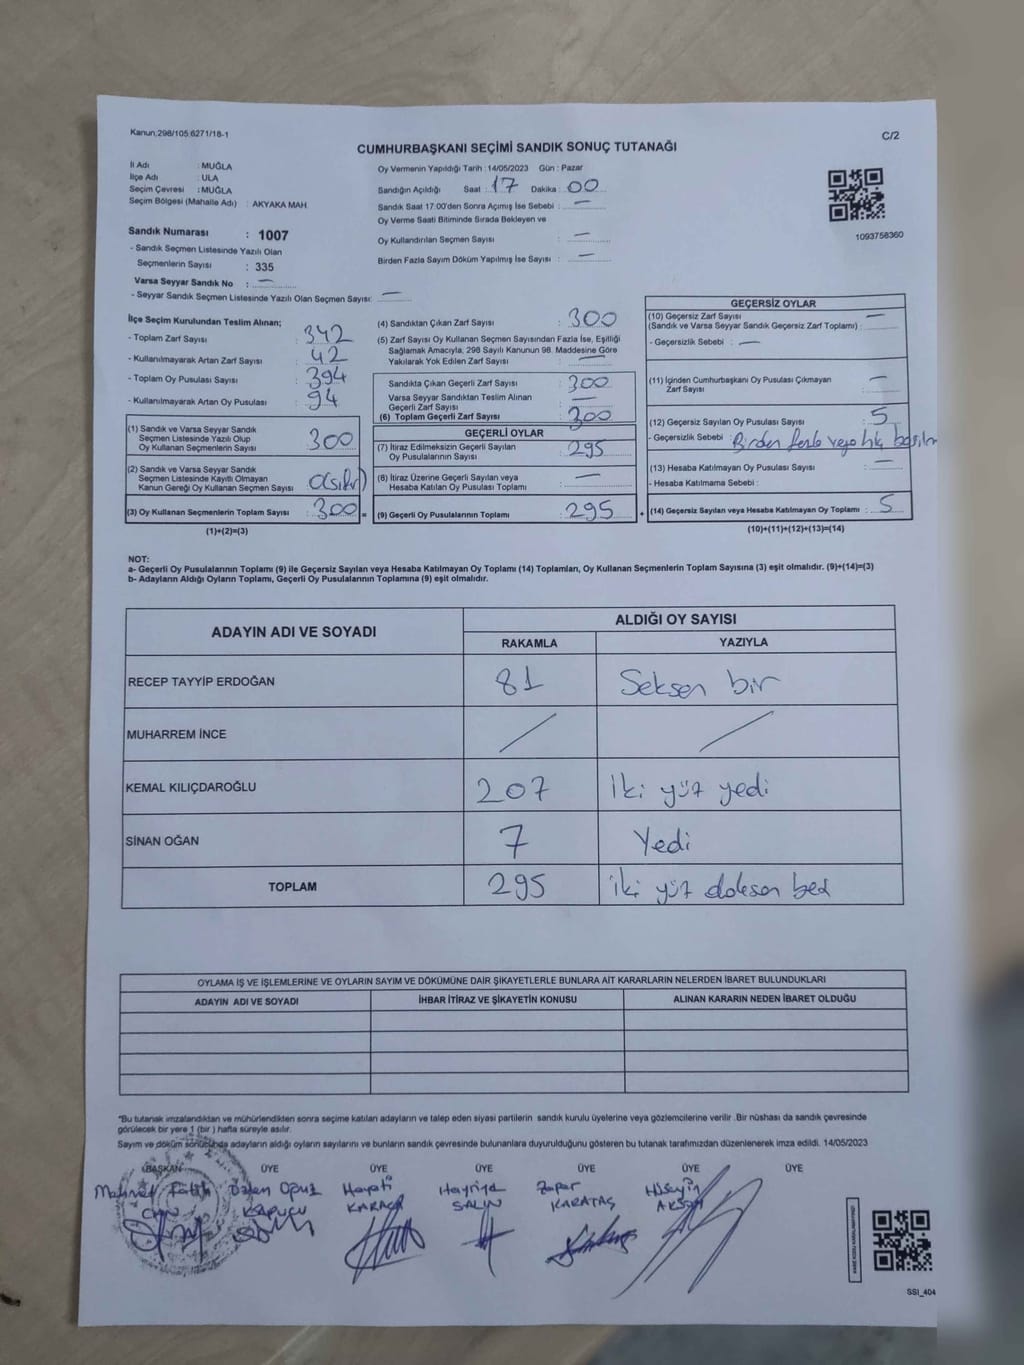 Kanun,298/105,6271/18-1
C/2
CUMHURBAŞKANI SEÇİMİ SANDIK SONUÇ TUTANAĞI
İl Adı : MUĞLA
İlçe Adı : ULA
Seçim Çevresi : MUĞLA
Seçim Bölgesi (Mahalle Adı) : AKYAKA MAH.
Oy Vermenin Yapıldığı Tarih : 14/05/2023 Gün : Pazar
Sandığın Açıldığı Saat : 17 Dakika : 00
Sandık Saat 17.00'den Sonra Açımış İse Sebebi : —
Oy Verme Saati Bitiminde Sırada Bekleyen ve
Oy Kullandırılan Seçmen Sayısı : —
Birden Fazla Sayım Döküm Yapılmış İse Sayısı : —
1093758360
Sandık Numarası : 1007
- Sandık Seçmen Listesinde Yazılı Olan
Seçmenlerin Sayısı : 335
Varsa Seyyar Sandık No : —
- Seyyar Sandık Seçmen Listesinde Yazılı Olan Seçmen Sayısı: —
İlçe Seçim Kurulundan Teslim Alınan;
- Toplam Zarf Sayısı : 342
- Kullanılmayarak Artan Zarf Sayısı : 42
- Toplam Oy Pusulası Sayısı : 394
- Kullanılmayarak Artan Oy Pusulası : 94
(1) Sandık ve Varsa Seyyar Sandık
Seçmen Listesinde Yazılı Olup
Oy Kullanan Seçmenlerin Sayısı : 300
(2) Sandık ve Varsa Seyyar Sandık
Seçmen Listesinde Kayıtlı Olmayan
Kanun Gereği Oy Kullanan Seçmen Sayısı : 0(sıfır)
(3) Oy Kullanan Seçmenlerin Toplam Sayısı : 300 =
(1)+(2)=(3)
(4) Sandıktan Çıkan Zarf Sayısı : 300
(5) Zarf Sayısı Oy Kullanan Seçmen Sayısından Fazla İse, Eşitliği
Sağlamak Amacıyla, 298 Sayılı Kanunun 98. Maddesine Göre
Yakılarak Yok Edilen Zarf Sayısı : —
Sandıkta Çıkan Geçerli Zarf Sayısı : 300
Varsa Seyyar Sandıktan Teslim Alınan
Geçerli Zarf Sayısı : —
(6) Toplam Geçerli Zarf Sayısı : 300
GEÇERLİ OYLAR
(7) İtiraz Edilmeksizin Geçerli Sayılan
Oy Pusulalarının Sayısı : 295
(8) İtiraz Üzerine Geçerli Sayılan veya
Hesaba Katılan Oy Pusulası Toplamı : —
(9) Geçerli Oy Pusulalarının Toplamı : 295 +
GEÇERSİZ OYLAR
(10) Geçersiz Zarf Sayısı
(Sandık ve Varsa Seyyar Sandık Geçersiz Zarf Toplamı) : —
- Geçersizlik Sebebi : —
(11) İçinden Cumhurbaşkanı Oy Pusulası Çıkmayan
Zarf Sayısı : —
(12) Geçersiz Sayılan Oy Pusulası Sayısı : 5
- Geçersizlik Sebebi : Birden fazla veya hiç
(13) Hesaba Katılmayan Oy Pusulası Sayısı : —
- Hesaba Katılmama Sebebi :
(14) Geçersiz Sayılan veya Hesaba Katılmayan Oy Toplamı : 5
(10)+(11)+(12)+(13)=(14)
NOT:
a- Geçerli Oy Pusulalarının Toplamı (9) ile Geçersiz Sayılan veya Hesaba Katılmayan Oy Toplamı (14) Toplamları, Oy Kullanan Seçmenlerin Toplam Sayısına (3) eşit olmalıdır. (9)+(14)=(3)
b- Adayların Aldığı Oyların Toplamı, Geçerli Oy Pusulalarının Toplamına (9) eşit olmalıdır.
ADAYIN ADI VE SOYADI
ALDIĞI OY SAYISI
RAKAMLA YAZIYLA
RECEP TAYYİP ERDOĞAN 81 Seksen bir
MUHARREM İNCE / /
KEMAL KILIÇDAROĞLU 207 İki yüz yedi
SİNAN OĞAN 7 Yedi
TOPLAM 295 iki yüz doksan beş
OYLAMA İŞ VE İŞLEMLERİNE VE OYLARIN SAYIM VE DÖKÜMÜNE DAİR ŞİKAYETLERLE BUNLARA AİT KARARLARIN NELERDEN İBARET BULUNDUKLARI
ADAYIN ADI VE SOYADI İHBAR İTİRAZ VE ŞİKAYETİN KONUSU ALINAN KARARIN NEDEN İBARET OLDUĞU
*Bu tutanak imzalandıktan ve mühürlendikten sonra seçime katılan adayların ve talep eden siyasi partilerin sandık kurulu üyelerine veya gözlemcilerine verilir .Bir nüshası da sandık çevresinde
görülecek bir yere 1 (bir ) hafta süreyle asılır.
Sayım ve döküm sonucunda adayların aldığı oyların sayılarını ve bunların sandık çevresinde bulunanlara duyurulduğunu gösteren bu tutanak tarafımızdan düzenlenerek imza edildi. 14/05/2023
BAŞKAN ÜYE ÜYE ÜYE ÜYE ÜYE ÜYE
Mehmet Fatih Özlen Oğuz Hayati Hayriye Zafer Hüseyin
KAPUCU KARACA SALIN KARATAŞ
SSI_404